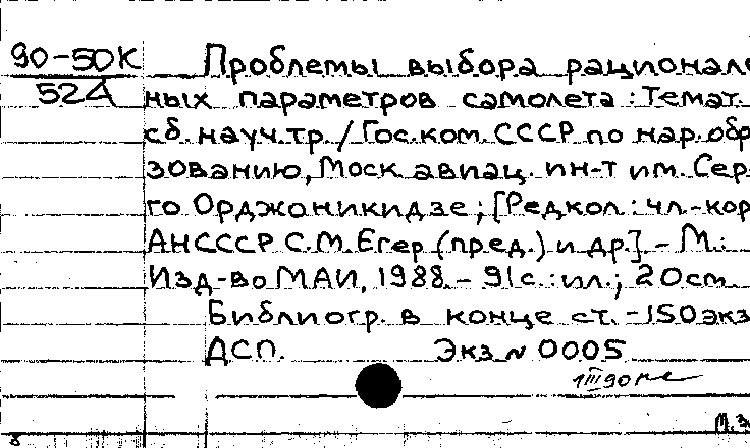 90-50К Проблемы выбора рационале
52Д ных параметров самолета : Темат.
сб. науч. тр. / Гос. ком. СССР по нар. обр
зованию, Моск. авиац. ин-т им. Сер
го Орджоникидзе ; [Редкол.: чл.-кор
АН СССР С.М. Егер (пред.) и др.]. - М.:
Изд-во МАИ, 1988. - 91 с. : ил. ; 20 см.
Библиогр. в конце ст. - 150 экз
ДСП. Экз № 0005
М.З
8